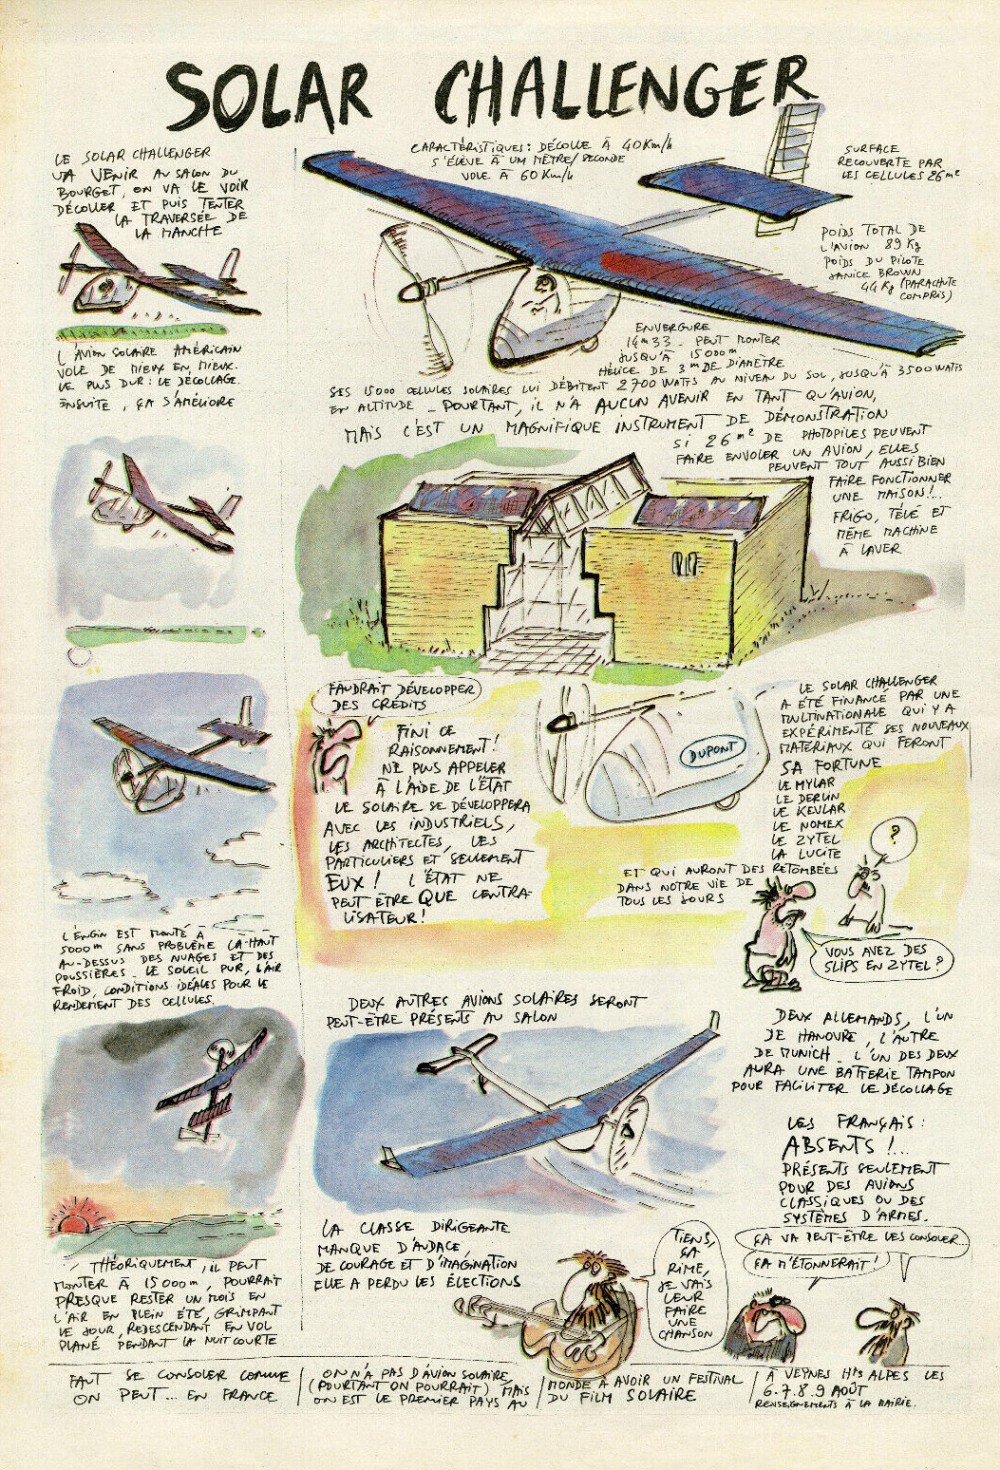 SOLAR CHALLENGER
LE SOLAR CHALLENGER
VA VENIR AU SALON DU
BOURGET, ON VA LE VOIR
DÉCOLLER ET PUIS TENTER
LA TRAVERSÉE DE
LA MANCHE
L'AVION SOLAIRE AMÉRICAIN
VOLE DE MIEUX EN MIEUX.
LE PLUS DUR : LE DÉCOLLAGE.
ENSUITE, ÇA S'AMÉLIORE
L'ENGIN EST MONTÉ À
5000 m SANS PROBLÈME LÀ-HAUT
AU-DESSUS DES NUAGES ET DES
POUSSIÈRES. LE SOLEIL PUR, L'AIR
FROID, CONDITIONS IDÉALES POUR LE
RENDEMENT DES CELLULES.
THÉORIQUEMENT, IL PEUT
MONTER À 15000 m, POURRAIT
PRESQUE RESTER UN MOIS EN
L'AIR EN PLEIN ÉTÉ, GRIMPANT
LE JOUR, REDESCENDANT EN VOL
PLANÉ PENDANT LA NUIT COURTE
CARACTÉRISTIQUES : DÉCOLLE À 40 Km/h
S'ÉLÈVE À UM MÈTRE/SECONDE
VOLE À 60 Km/h
SURFACE
RECOUVERTE PAR
LES CELLULES 26 m²
POIDS TOTAL DE
L'AVION 89 Kg
POIDS DU PILOTE
JANICE BROWN
44 Kg (PARACHUTE
COMPRIS)
ENVERGURE
14 m 33. PEUT MONTER
JUSQU'À 15000 m
HÉLICE DE 3 m DE DIAMÈTRE
SES 15000 CELLULES SOLAIRES LUI DÉBITENT 2700 WATTS AU NIVEAU DU SOL, JUSQU'À 3500 WATTS
EN ALTITUDE _ POURTANT, IL N'A AUCUN AVENIR EN TANT QU'AVION,
MAIS C'EST UN MAGNIFIQUE INSTRUMENT DE DÉMONSTRATION
SI 26 m² DE PHOTOPILES PEUVENT
FAIRE ENVOLER UN AVION, ELLES
PEUVENT TOUT AUSSI BIEN
FAIRE FONCTIONNER
UNE MAISON !..
FRIGO, TÉLÉ ET
MÊME MACHINE
À LAVER
FAUDRAIT DÉVELOPPER
DES CRÉDITS
FINI CE
RAISONNEMENT !
NE PLUS APPELER
À L'AIDE DE L'ÉTAT
LE SOLAIRE SE DÉVELOPPERA
AVEC LES INDUSTRIELS,
LES ARCHITECTES, LES
PARTICULIERS ET SEULEMENT
EUX ! L'ÉTAT NE
PEUT ÊTRE QUE CENTRA-
LISATEUR !
DUPONT
LE SOLAR CHALLENGER
A ÉTÉ FINANCÉ PAR UNE
MULTINATIONALE QUI Y A
EXPÉRIMENTÉ SES NOUVEAUX
MATÉRIAUX QUI FERONT
SA FORTUNE
LE MYLAR
LE DERLIN
LE KEVLAR
LE NOMEX
LE ZYTEL
LA LUCITE
ET QUI AURONT DES RETOMBÉES
DANS NOTRE VIE DE
TOUS LES JOURS
?
VOUS AVEZ DES
SLIPS EN ZYTEL ?
DEUX AUTRES AVIONS SOLAIRES SERONT
PEUT-ÊTRE PRÉSENTS AU SALON
DEUX ALLEMANDS, L'UN
DE HANOVRE, L'AUTRE
DE MUNICH. L'UN DES DEUX
AURA UNE BATTERIE TAMPON
POUR FACILITER LE DÉCOLLAGE
LES FRANÇAIS :
ABSENTS !...
PRÉSENTS SEULEMENT
POUR DES AVIONS
CLASSIQUES OU DES
SYSTÈMES D'ARMES.
LA CLASSE DIRIGEANTE
MANQUE D'AUDACE,
DE COURAGE ET D'IMAGINATION
ELLE A PERDU LES ÉLECTIONS
TIENS,
ÇA
RIME,
JE VAIS
LEUR
FAIRE
UNE
CHANSON
ÇA VA PEUT-ÊTRE LES CONSOLER
ÇA M'ÉTONNERAIT !
FAUT SE CONSOLER COMME
ON PEUT... EN FRANCE
ON N'A PAS D'AVION SOLAIRE,
(POURTANT ON POURRAIT) MAIS
ON EST LE PREMIER PAYS AU
MONDE À AVOIR UN FESTIVAL
DU FILM SOLAIRE
À VEYNES Htes ALPES LES
6.7.8.9 AOÛT
RENSEIGNEMENTS À LA MAIRIE.